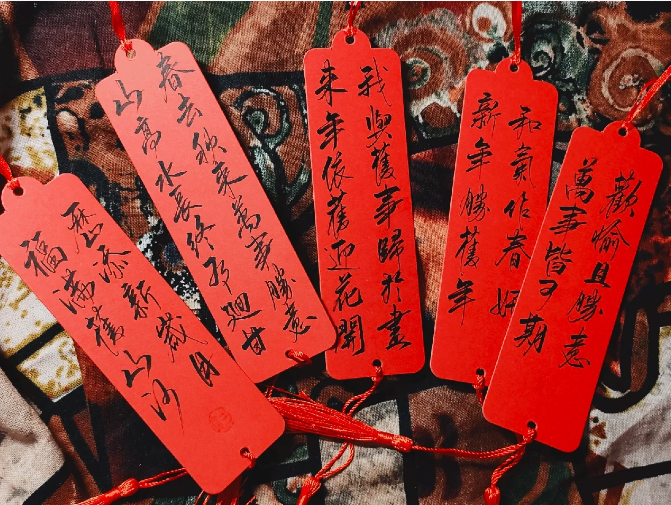 歷添新歲月
福滿舊山河
春去秋來萬事勝意
山高水長終有迴甘
我與舊事歸於盡
来年依舊迎花開
和氣 春
新年勝舊年
歡愉且勝意
萬事皆可期